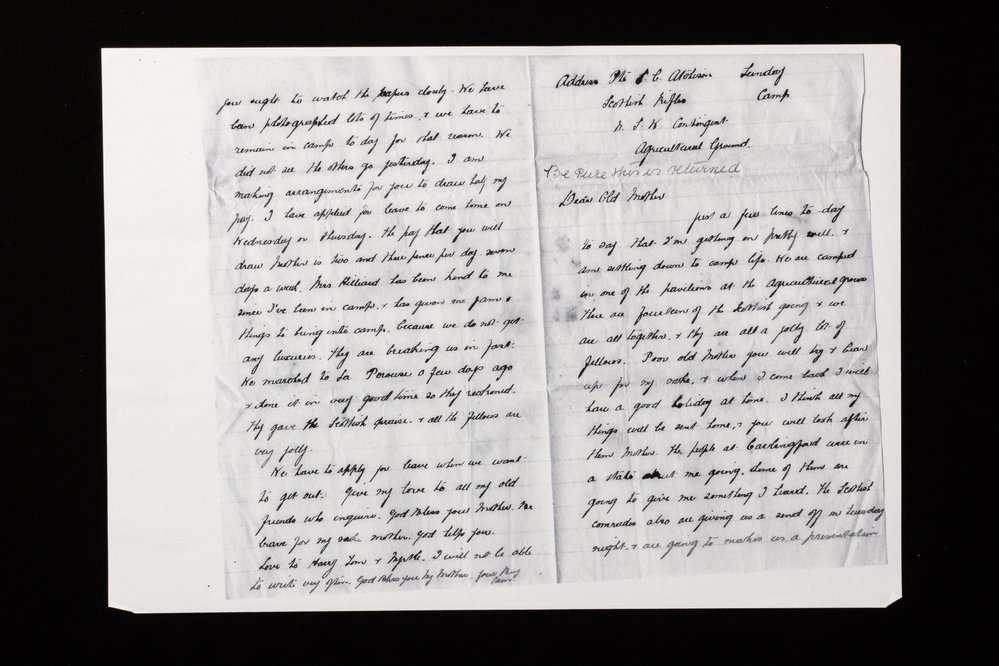 Address Pte J. C. Atchison Sunday
Scottish Rifles Camp
N. S. W. Contingent
Agricultural Ground
Be sure this is returned
Dear Old Mother
just a few lines to day
to say that I'm getting on pretty well. &
am settling down to camp life. We are camped
in one of the pavilions at the Agricultural grounds
there are fourteen of the Scottish going & we
are all together, & they are all a jolly lot of
fellows. Poor old Mother you will try & bear
up for my sake, & when I come back I will
have a good holiday at home. I think all my
things will be sent home, & you will look after
them Mother. The people at Carlingford were in
a state about me going. Some of them are
going to give me something I heard. The Scottish
comrades also are giving us a send off on Tuesday
night, & are going to make us a presentation
you ought to watch the papers closely. We have
been photographed lots of times, & we have to
remain in camp to day for that reason. We
did not see the others go yesterday. I am
making arrangements for you to draw half my
pay. I have applied for leave to come home on
Wednesday or Thursday. The pay that you will
draw Mother is two and three pence per day seven
days a week. Mrs Hilliard has been kind to me
since I've been in camp, & has given me jam &
things to bring into camp, because we do not get
any luxuries. They are breaking us in fast.
We marched to La Perouse a few days ago
& done it in very good time so they reckoned.
They gave the Scottish praise, & all the fellows are
very jolly.
We have to apply for leave when we want
to get out. Give my love to all my old
friends who inquire. God Bless you Mother. Be
brave for my sake mother. God help you.
Love to Harry Tom & Myrtle. I will not be able
to write very often. God bless you My Mother. Your